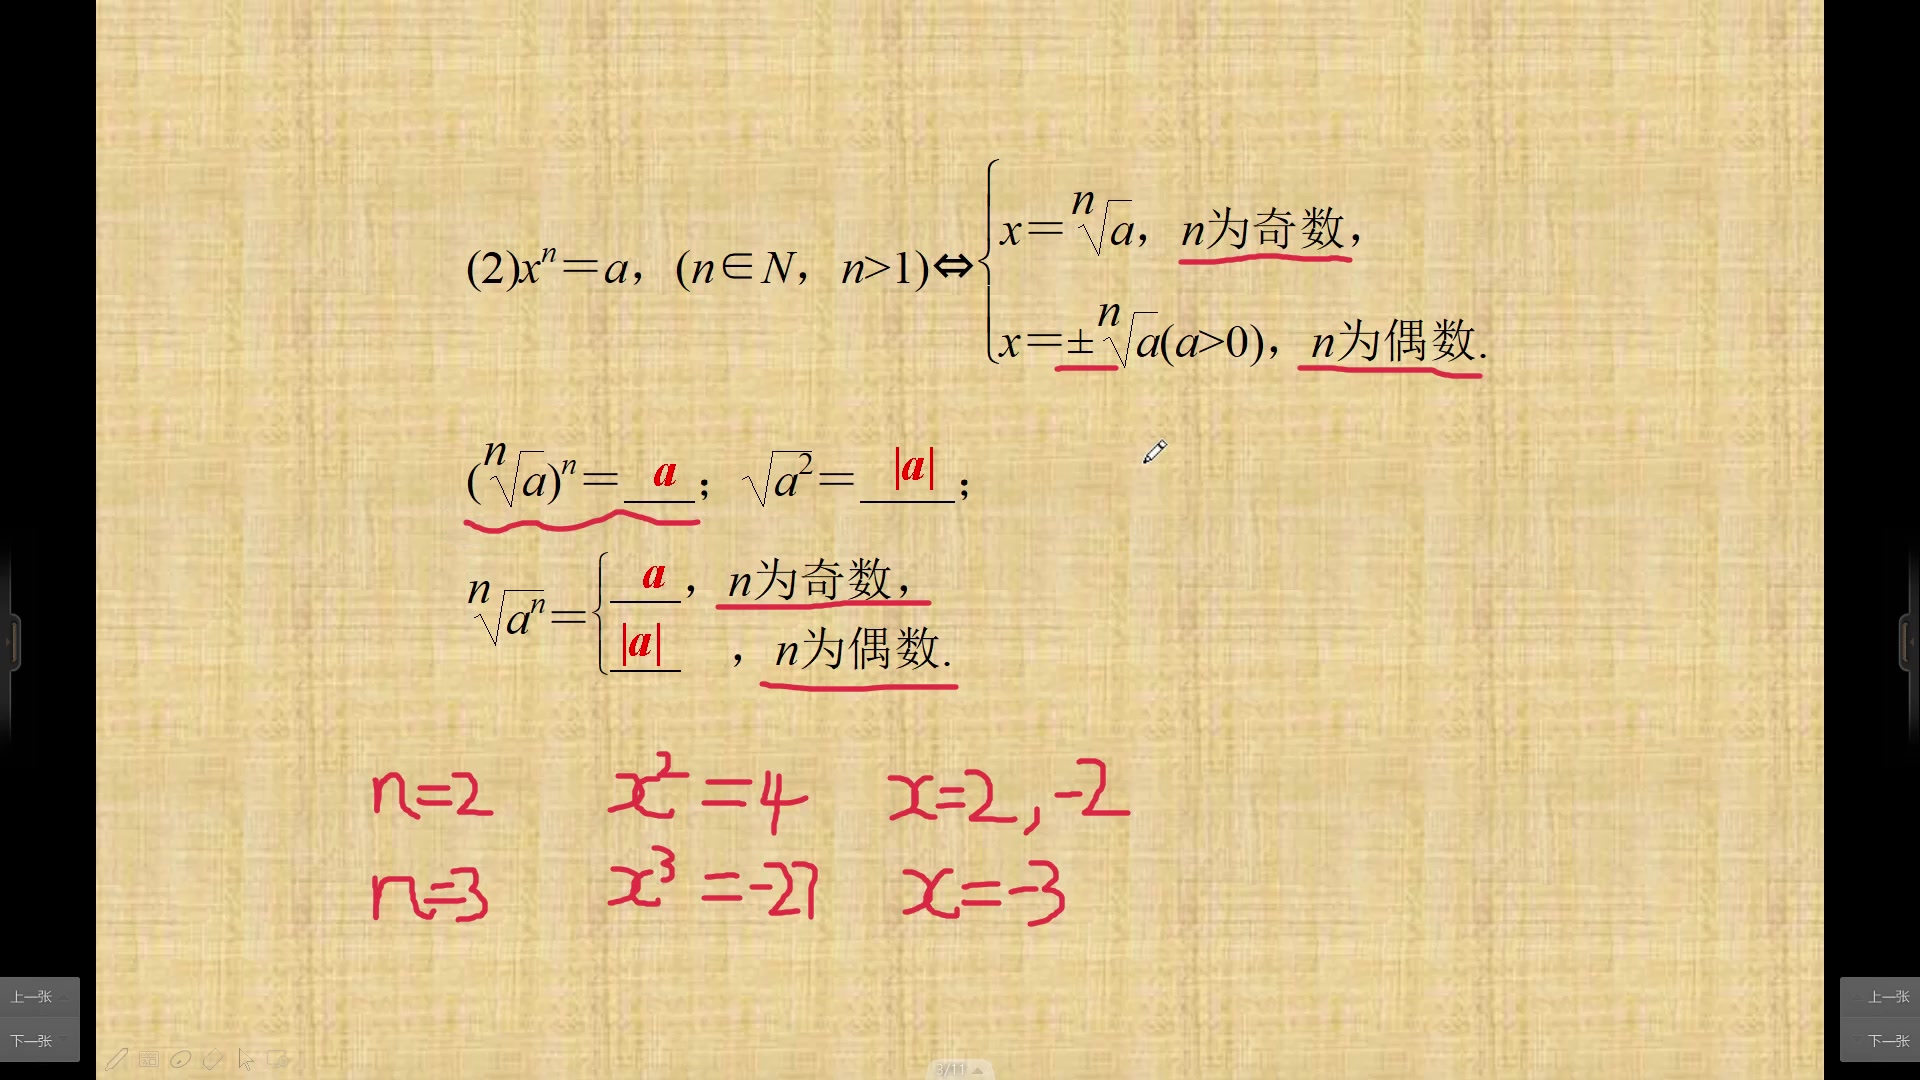 (2)xⁿ＝a，(n∈N，n>1)⇔
x＝ⁿ√a，n为奇数，
x＝±ⁿ√a(a>0)，n为偶数.
(ⁿ√a)ⁿ＝a；√a²＝|a|；
ⁿ√aⁿ＝
a，n为奇数，
|a|，n为偶数.
n=2 x²=4 x=2,-2
n=3 x³=-27 x=-3
上一张 上一张
下一张 下一张
3/11